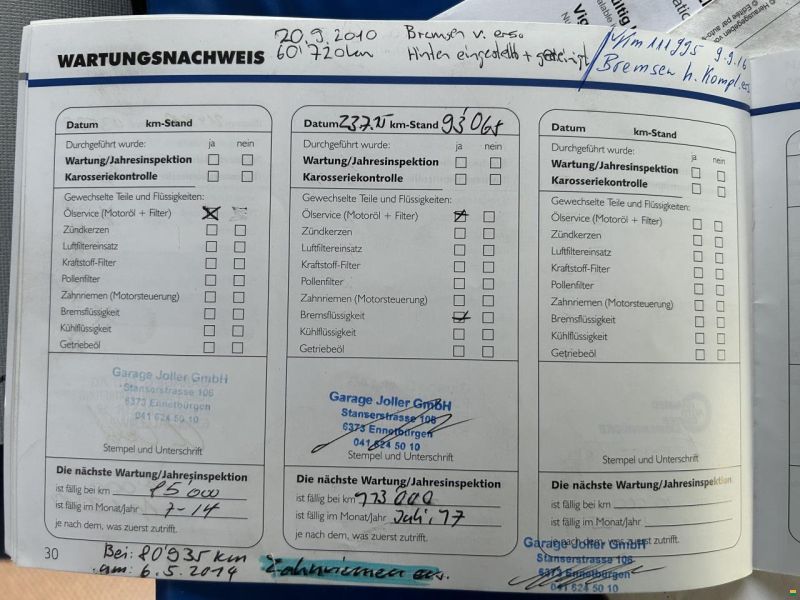 WARTUNGSNACHWEIS
20.9.2010 Bremsen v. ers.
60'720km Hinten eingestellt + gereinigt
Km 111995 9.9.16
Bremsen h. Kompl. ers.
Datum km-Stand
Durchgeführt wurde: ja nein
Wartung/Jahresinspektion
Karosseriekontrolle
Gewechselte Teile und Flüssigkeiten:
Ölservice (Motoröl + Filter)
Zündkerzen
Luftfiltereinsatz
Kraftstoff-Filter
Pollenfilter
Zahnriemen (Motorsteuerung)
Bremsflüssigkeit
Kühlflüssigkeit
Getriebeöl
Garage Joller GmbH
Stanserstrasse 106
6373 Ennetbürgen
041 624 50 10
Stempel und Unterschrift
Die nächste Wartung/Jahresinspektion
ist fällig bei km 85'000
ist fällig im Monat/Jahr 7-14
je nach dem, was zuerst zutrifft.
30
Bei: 80'935 km
am: 6.5.2014 Zahnriemen ers.
Datum 23.7.15 km-Stand 93'065
Durchgeführt wurde: ja nein
Wartung/Jahresinspektion
Karosseriekontrolle
Gewechselte Teile und Flüssigkeiten:
Ölservice (Motoröl + Filter)
Zündkerzen
Luftfiltereinsatz
Kraftstoff-Filter
Pollenfilter
Zahnriemen (Motorsteuerung)
Bremsflüssigkeit
Kühlflüssigkeit
Getriebeöl
Garage Joller GmbH
Stanserstrasse 106
6373 Ennetbürgen
041 624 50 10
Stempel und Unterschrift
Die nächste Wartung/Jahresinspektion
ist fällig bei km 113'000
ist fällig im Monat/Jahr Juli, 17
je nach dem, was zuerst zutrifft.
Datum km-Stand
Durchgeführt wurde: ja nein
Wartung/Jahresinspektion
Karosseriekontrolle
Gewechselte Teile und Flüssigkeiten:
Ölservice (Motoröl + Filter)
Zündkerzen
Luftfiltereinsatz
Kraftstoff-Filter
Pollenfilter
Zahnriemen (Motorsteuerung)
Bremsflüssigkeit
Kühlflüssigkeit
Getriebeöl
Stempel und Unterschrift
Die nächste Wartung/Jahresinspektion
ist fällig bei km
ist fällig im Monat/Jahr
je nach dem, was zuerst zutrifft.
Garage Joller GmbH
Stanserstrasse 106
6373 Ennetbürgen
041 624 50 10